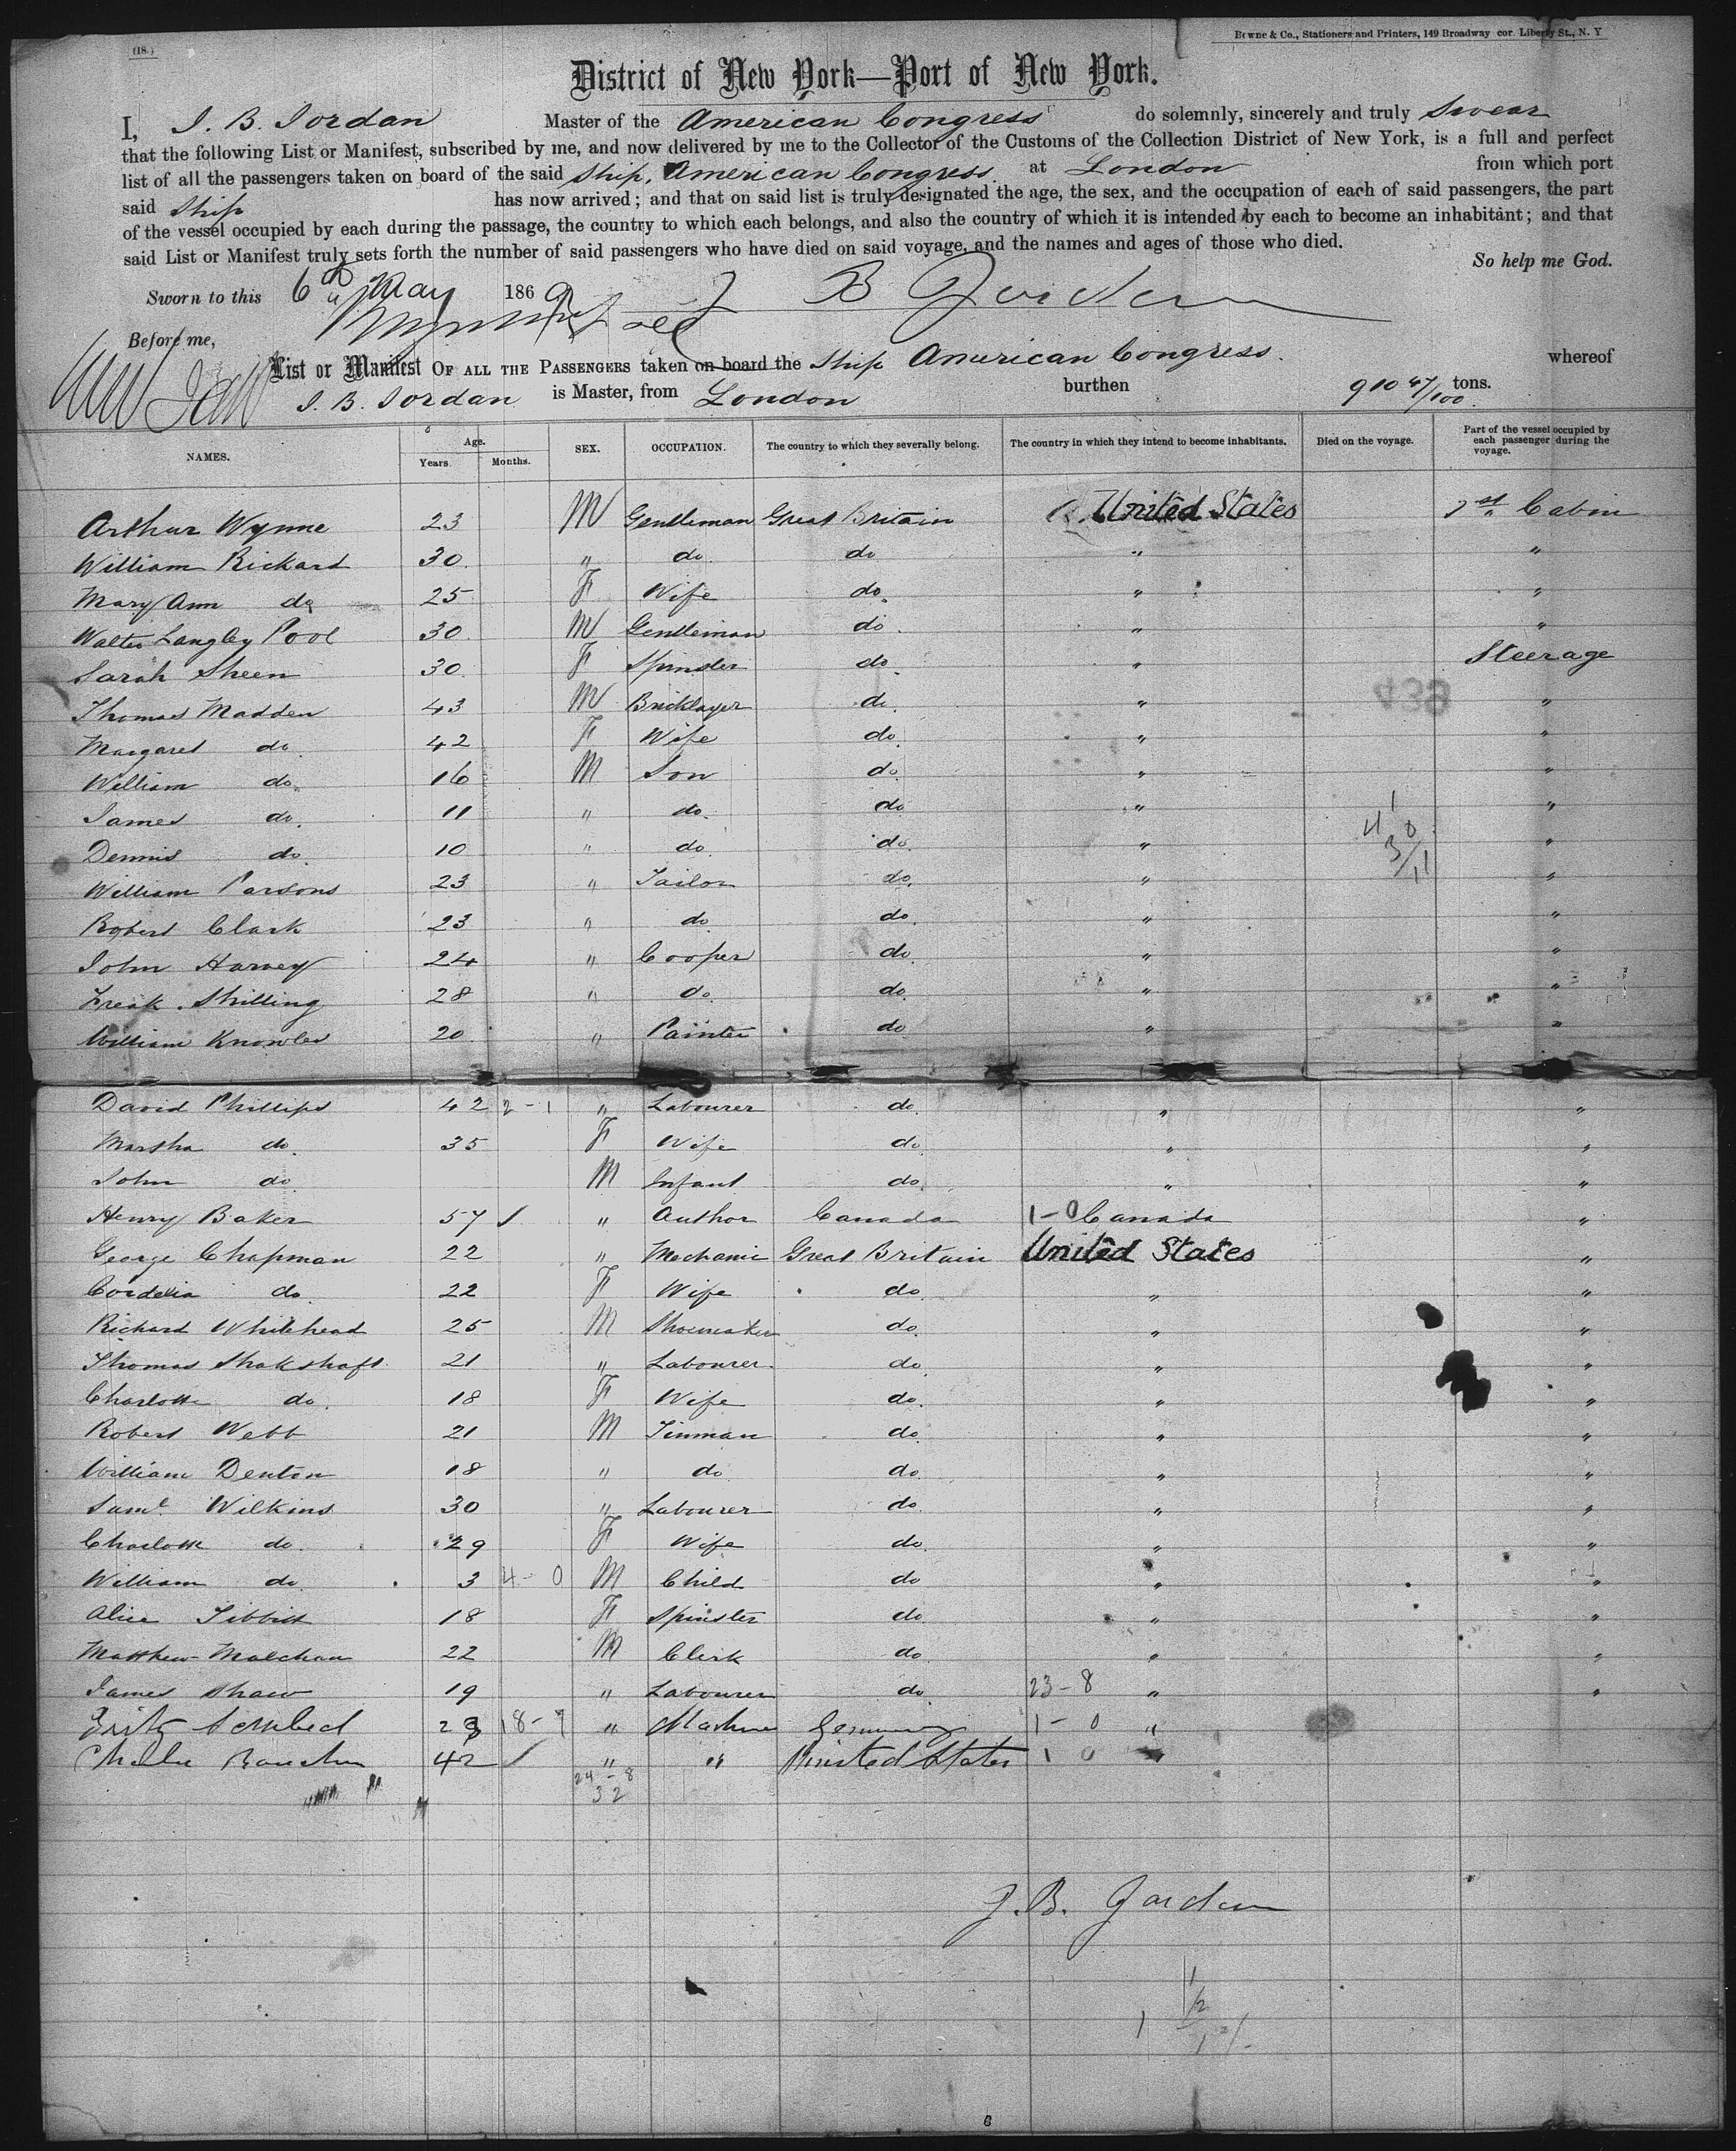 (18.)
Browne & Co., Stationers and Printers, 149 Broadway cor. Liberty St., N. Y
District of New York—Port of New York.
I, J. B. Jordan Master of the American Congress do solemnly, sincerely and truly Swear
that the following List or Manifest, subscribed by me, and now delivered by me to the Collector of the Customs of the Collection District of New York, is a full and perfect
list of all the passengers taken on board of the said Ship, American Congress at London from which port
said Ship has now arrived; and that on said list is truly designated the age, the sex, and the occupation of each of said passengers, the part
of the vessel occupied by each during the passage, the country to which each belongs, and also the country of which it is intended by each to become an inhabitant; and that
said List or Manifest truly sets forth the number of said passengers who have died on said voyage, and the names and ages of those who died.
So help me God.
Sworn to this 6th May 1869 J B Jordan
Before me,
List or Manifest OF ALL THE PASSENGERS taken on board the Ship American Congress. whereof
J. B. Jordan is Master, from London burthen 910 47/100 tons.
NAMES. Age. Years. Months. SEX. OCCUPATION. The country to which they severally belong. The country in which they intend to become inhabitants. Died on the voyage. Part of the vessel occupied by each passenger during the voyage.
Arthur Wynne 23 M Gentleman Great Britain United States 1st Cabin
William Rickard 30 " do do " "
Mary Ann do 25 F Wife do " "
Walter Langley Pool 30 M Gentleman do " "
Sarah Sheen 30 F Spinster do " Steerage
Thomas Madden 43 M Bricklayer do " "
Margaret do 42 F Wife do " "
William do 16 M Son do " "
James do 11 " do do " "
Dennis do 10 " do do " "
William Parsons 23 " Tailor do " "
Robert Clark 23 " do do " "
John Harvey 24 " Cooper do " "
Fredk. Shilling 28 " do do " "
William Knowles 20 " Painter do " "
David Phillips 42 2-1 " Labourer do " "
Martha do 35 F Wife do " "
John do M Infant do " "
Henry Baker 57 " Author Canada 1-0 Canada "
George Chapman 22 " Mechanic Great Britain United States "
Cordelia do 22 F Wife do " "
Richard Whitehead 25 M Shoemaker do " "
Thomas Shakshaft 21 " Labourer do " "
Charlotte do 18 F Wife do " "
Robert Webb 21 M Tinman do " "
William Denton 18 " do do " "
Saml. Wilkins 30 " Labourer do " "
Charlotte do 29 F Wife do " "
William do 3 4-0 M Child do " "
Alice Tibbitt 18 F Spinster do " "
Matthew Malchau 22 M Clerk do " "
James Shaw 19 " Labourer do 23-8 " "
18-7 " Germany 1-0 "
42 " " United States 1 0 "
24-8
32
J. B. Jordan